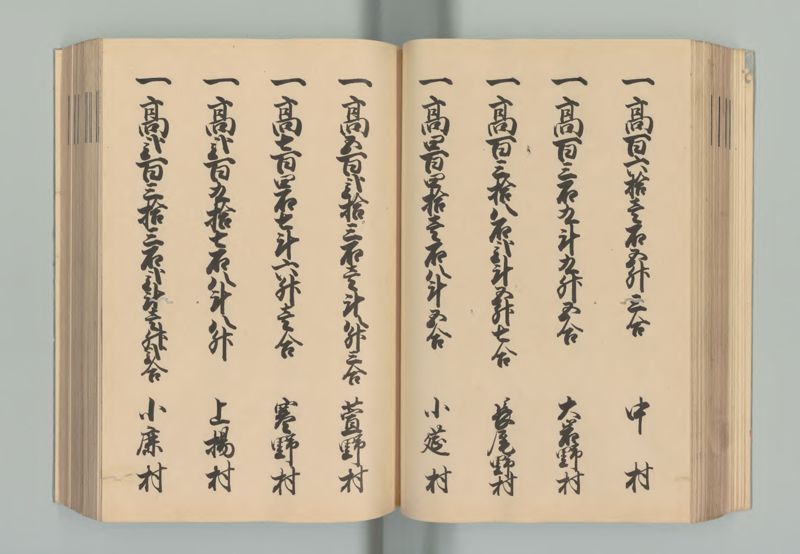 一高百六拾壱石五升三合 中村
一高百三石九斗九升五合 大岩野村
一高百三拾八石弐斗五升七合 長尾野村
一高四百四拾壱石八斗五合 小莚村
一高五百弐拾三石壱斗八升三合 萱野村
一高七百四石七斗六升壱合 寒野村
一高弐百九拾七石八斗八升 上揚村
一高弐百三拾三石弐斗壱升弐合 小麻村